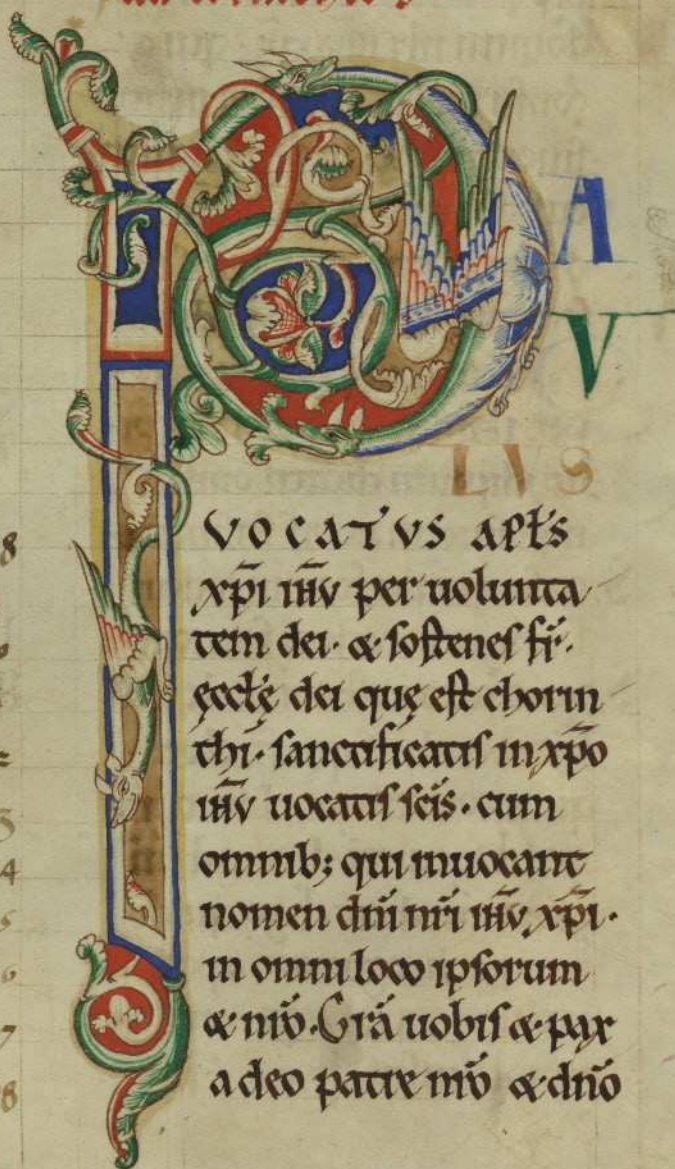 P
A
V
LVS
VOCATVS APŁS
xp̄i ih̄v per uolunta
tem dei· & soſtenes fr̄·
ęccłę dei quę eſt chorin
thi· sanctificatiſ in xp̄o
ih̄v uocatiſ sc̄iſ· cum
omnib; qui inuocant
nomen dn̄i nr̄i ih̄v xp̄i·
in omni loco ipſorum
& nr̄o. Gr̄a uobiſ & pax
a deo patre nr̄o & dn̄o